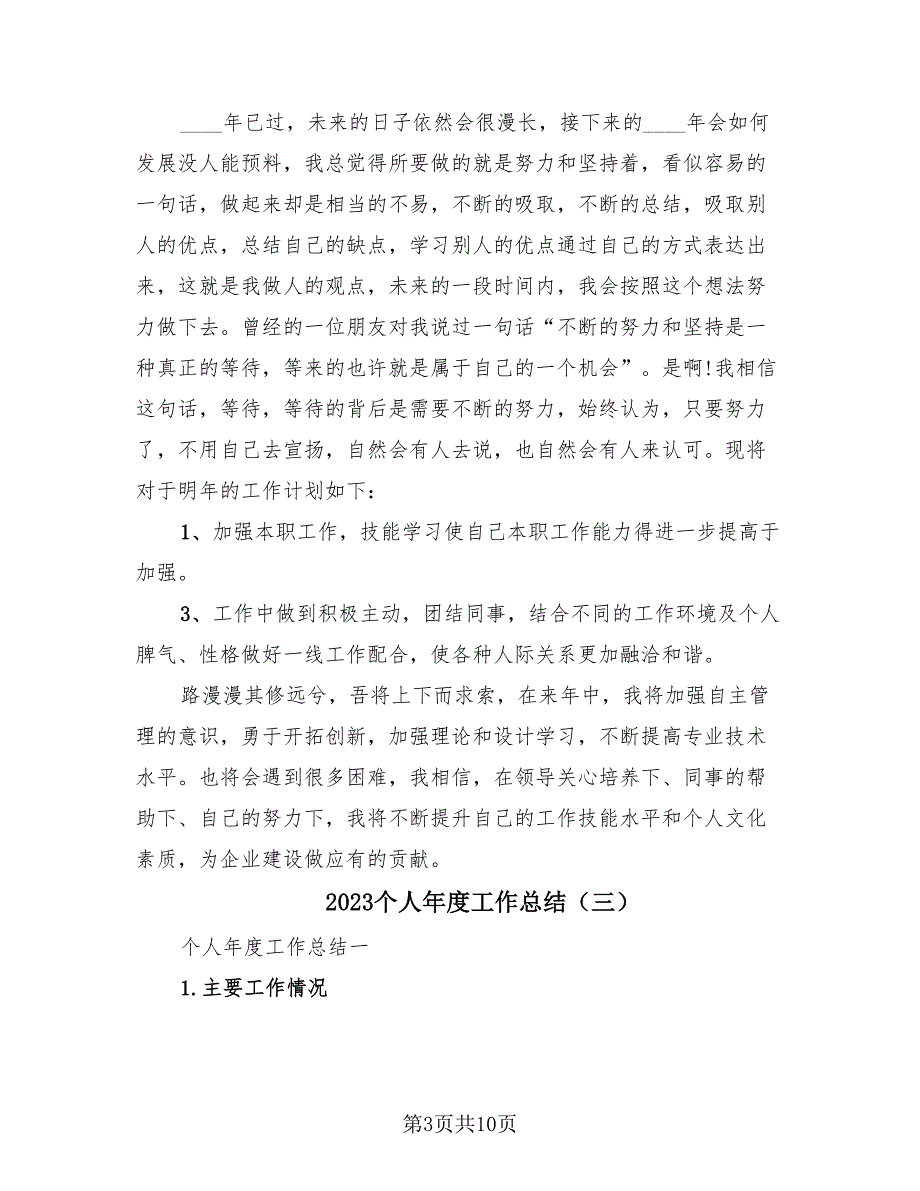 ____年已过，未来的日子依然会很漫长，接下来的____年会如何
发展没人能预料，我总觉得所要做的就是努力和坚持着，看似容易的
一句话，做起来却是相当的不易，不断的吸取，不断的总结，吸取别
人的优点，总结自己的缺点，学习别人的优点通过自己的方式表达出
来，这就是我做人的观点，未来的一段时间内，我会按照这个想法努
力做下去。曾经的一位朋友对我说过一句话“不断的努力和坚持是一
种真正的等待，等来的也许就是属于自己的一个机会”。是啊!我相信
这句话，等待，等待的背后是需要不断的努力，始终认为，只要努力
了，不用自己去宣扬，自然会有人去说，也自然会有人来认可。现将
对于明年的工作计划如下：
1、加强本职工作，技能学习使自己本职工作能力得进一步提高于
加强。
3、工作中做到积极主动，团结同事，结合不同的工作环境及个人
脾气、性格做好一线工作配合，使各种人际关系更加融洽和谐。
路漫漫其修远兮，吾将上下而求索，在来年中，我将加强自主管
理的意识，勇于开拓创新，加强理论和设计学习，不断提高专业技术
水平。也将会遇到很多困难，我相信，在领导关心培养下、同事的帮
助下、自己的努力下，我将不断提升自己的工作技能水平和个人文化
素质，为企业建设做应有的贡献。
2023个人年度工作总结（三）
个人年度工作总结一
1.主要工作情况
第3页共10页